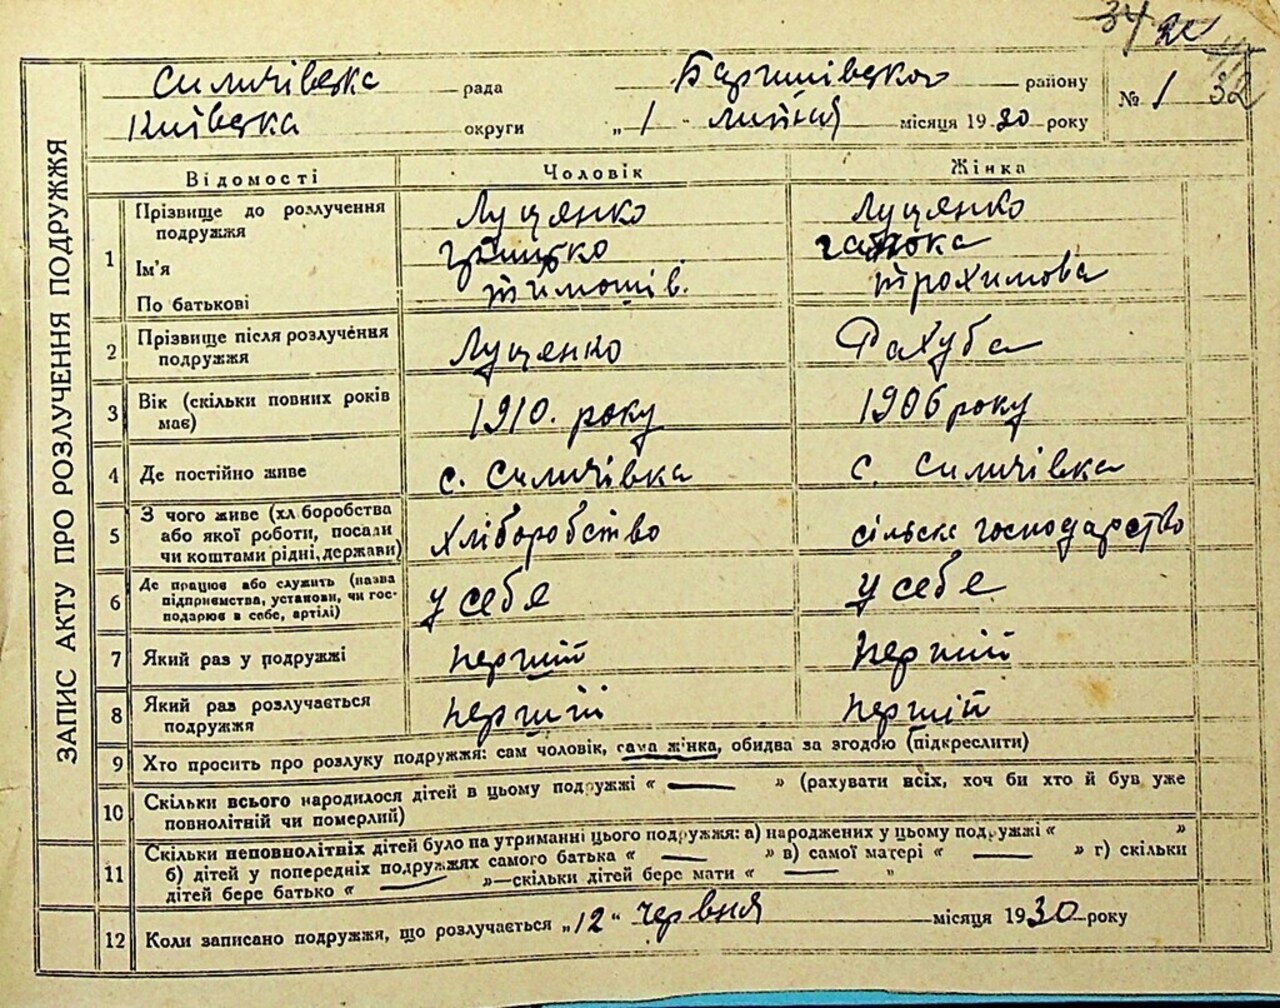 34 20
32
ЗАПИС АКТУ ПРО РОЗЛУЧЕННЯ ПОДРУЖЖЯ
Силичівська рада Баришівського району № 1
Київська округи „ 1 " липня місяця 1930 року
Відомості Чоловік Жінка
1 Прізвище до розлучення подружжя Луценко Луценко
Ім'я Грицько
По батькові Тимошів. Трохимова
2 Прізвище після розлучення подружжя Луценко Рахуба
3 Вік (скільки повних років має) 1910. року 1906 року
4 Де постійно живе с. Силичівка с. Силичівка
5 З чого живе (хл боробства або якої роботи, посади чи коштами рідні, держави) Хліборобство сільське господарство
6 Де працює або служить (назва підприємства, установи, чи господарює в себе, артілі) у себе у себе
7 Який раз у подружжі перший перший
8 Який раз розлучається подружжя перший перший
9 Хто просить про розлуку подружжя: сам чоловік, сама жінка, обидва за згодою (підкреслити)
10 Скільки всього народилося дітей в цьому подружжі « — » (рахувати всіх, хоч би хто й був уже
повнолітній чи померлий)
11 Скільки неповнолітніх дітей було на утриманні цього подружжя: а) народжених у цьому подружжі « »
б) дітей у попередніх подружжях самого батька « — » в) самої матері « — » г) скільки
дітей бере батько « — »—скільки дітей бере мати « — »
12 Коли записано подружжя, що розлучається „12" червня місяця 1930 року